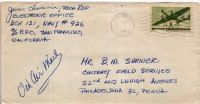 ELECTRONIC OFFICE
BOX 121, NAVY # 926
% F.P.O., SAN FRANCISCO,
CALIFORNIA
Via Air Mail
MR. B. M. SHRINER
CONTRACT FIELD SERVICE
22ND AND LEHIGH AVENUES
PHILADELPHIA 32, PENNA.